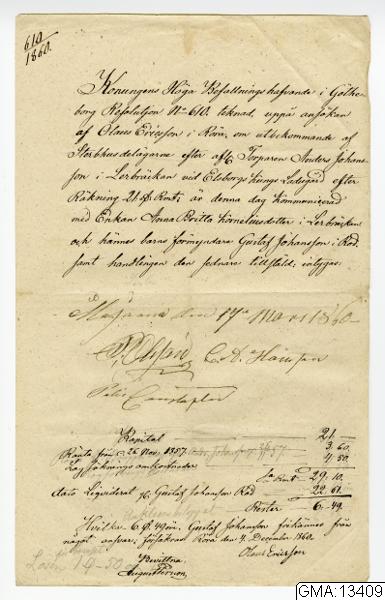 610/1860.
Konungens Höga Befallningshafvande i Göthe-
borg Resolution No 610. teknad, uppå ansökan
af Claus Ericsson i Rörö, om utbekommande af
Sterbhusdelägarne efter afl. Torparen Anders Johans-
son i Lerbräckan vid Elfsborgs Kungs Ladugård efter
Räkning 21 Rd Rmt; är denna dag kommunicerad
med Enkan Anna Britta Cornelausdotter i Lerbräckan
och hännes barns förmyndare Gustaf Johansson i Rad
samt handlingen den sednare tillställd; intygas:
den 17de Mars 1860
P. Olsson C. A. Hansson
Polis Constapler
Kapital 21.
Ränta från 26 Nov. 1857. 3.60.
Lagsöknings omkostnader 4.50
Sa Rmt 29.10.
dato Liqviderat af Gustaf Johansson Rad 22.61.
Rester 6.49.
Hvilka 6 Rd 49 öre, Gustaf Johansson frikännes från
något ansvar; försäkras Rörö den 4 December 1860.
Claus Ericsson
Bevittna
August
GMA:13409